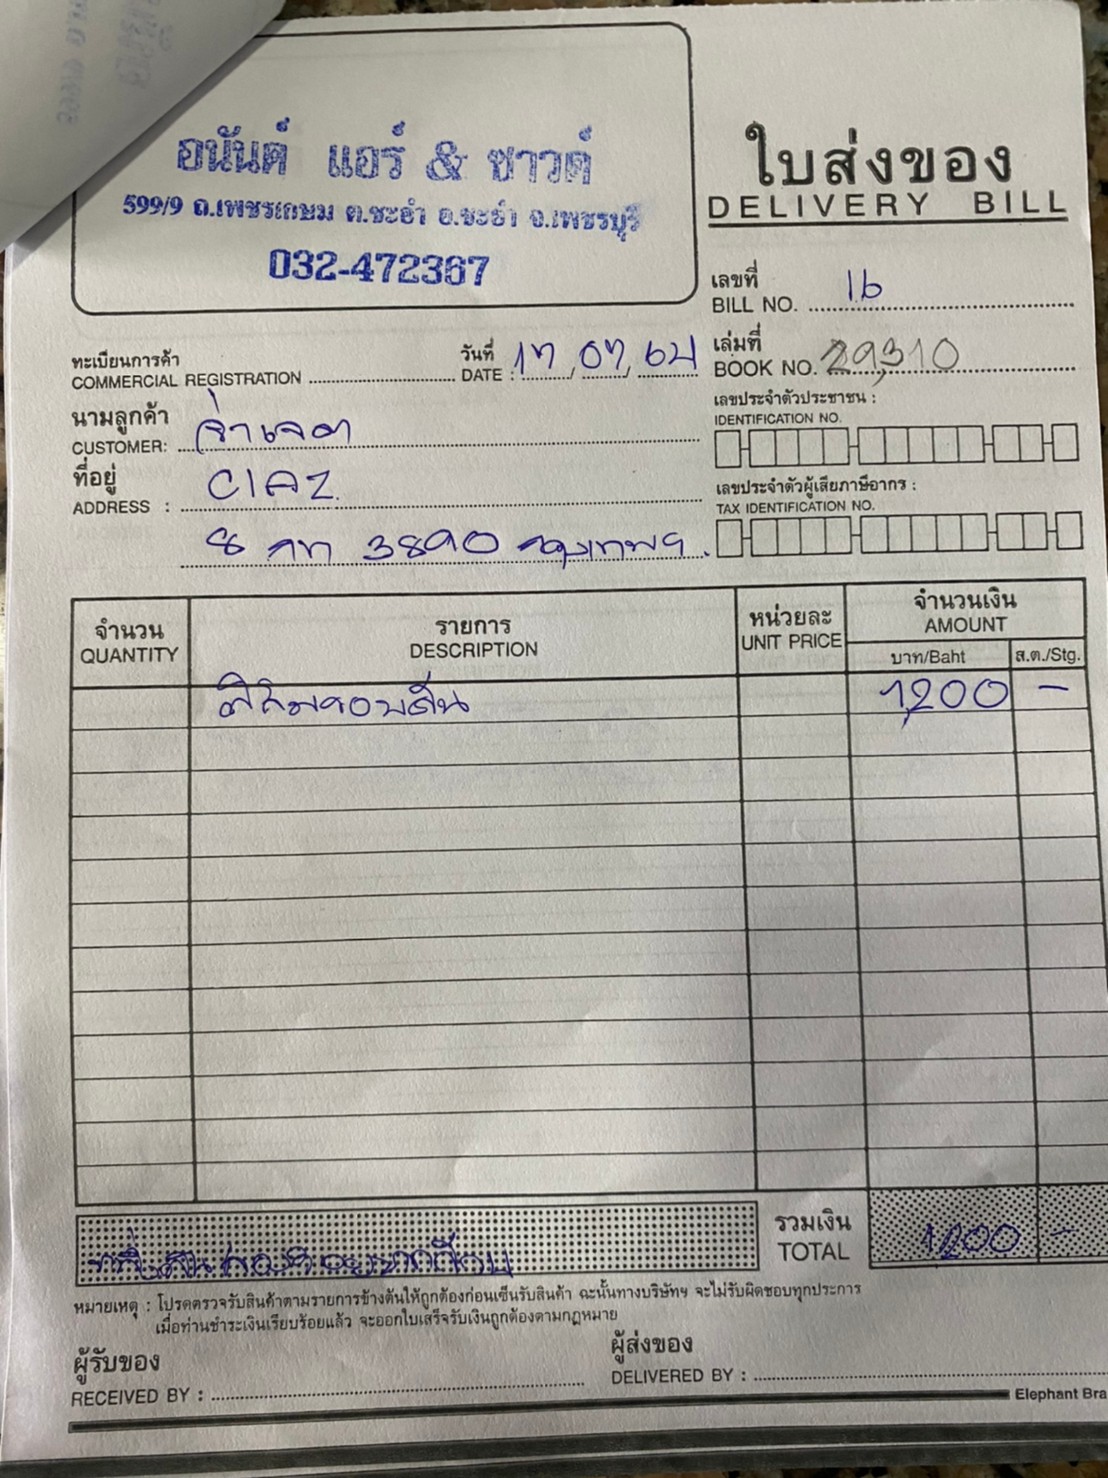 อนันต์ แอร์ & ซาวด์
599/9 ถ.เพชรเกษม ต.ชะอำ อ.ชะอำ จ.เพชรบุรี
032-472367
ใบส่งของ
DELIVERY BILL
เลขที่
BILL NO. 16
ทะเบียนการค้า
COMMERCIAL REGISTRATION
วันที่
DATE : 17, 07, 64
เล่มที่
BOOK NO. 29,310
นามลูกค้า
CUSTOMER: จ่าเจต
เลขประจำตัวประชาชน :
IDENTIFICATION NO.
ที่อยู่
ADDRESS : CIAZ
เลขประจำตัวผู้เสียภาษีอากร :
TAX IDENTIFICATION NO.
8 กท 3890 กรุงเทพฯ
จำนวน
QUANTITY
รายการ
DESCRIPTION
หน่วยละ
UNIT PRICE
จำนวนเงิน
AMOUNT
บาท/Baht
ส.ต./Stg.
1,200 -
รวมเงิน
TOTAL
1,200 -
หมายเหตุ : โปรดตรวจรับสินค้าตามรายการข้างต้นให้ถูกต้องก่อนเซ็นรับสินค้า ฉะนั้นทางบริษัทฯ จะไม่รับผิดชอบทุกประการ
เมื่อท่านชำระเงินเรียบร้อยแล้ว จะออกใบเสร็จรับเงินถูกต้องตามกฎหมาย
ผู้รับของ
RECEIVED BY :
ผู้ส่งของ
DELIVERED BY :
Elephant Bra